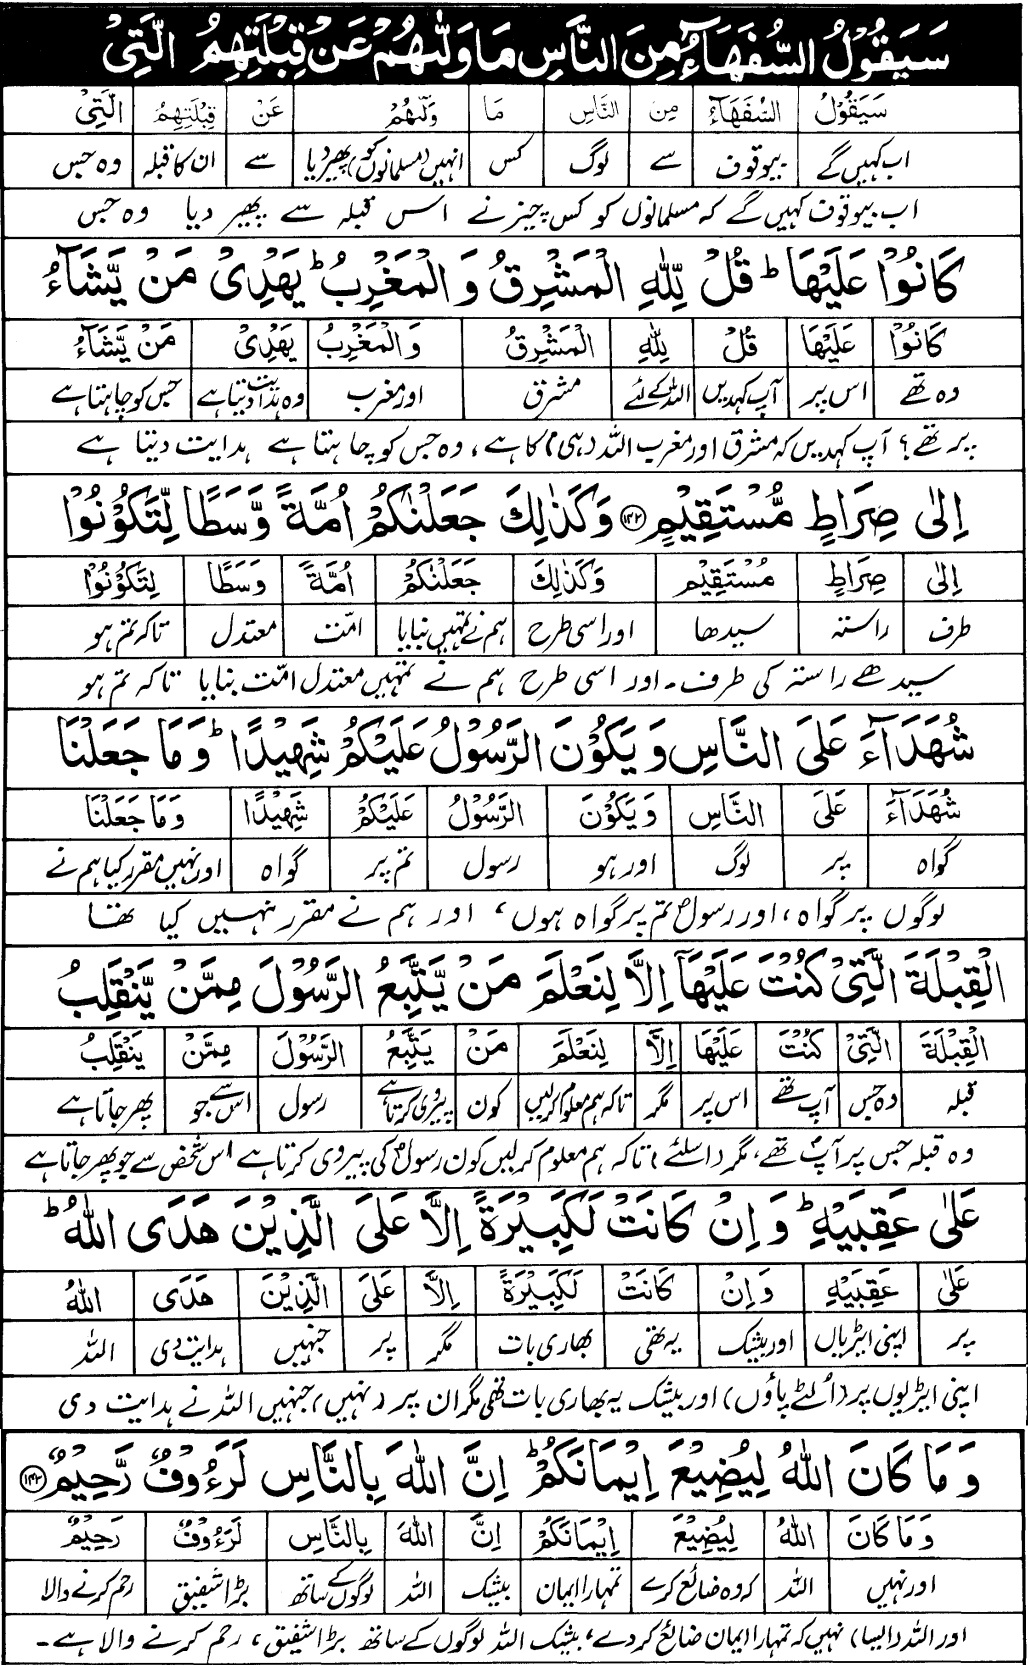 سَيَقُوْلُ السُّفَهَآءُ مِنَ النَّاسِ مَا وَلّٰىهُمْ عَنْ قِبْلَتِهِمُ الَّتِيْ
سَيَقُوْلُ السُّفَهَآءُ مِنَ النَّاسِ مَا وَلّٰىهُمْ عَنْ قِبْلَتِهِمُ الَّتِيْ
اب کہیں گے بیوقوف سے لوگ کس انہیں (مسلمانوں کو) پھیر دیا سے ان کا قبلہ وہ جس
اب بیوقوف کہیں گے کہ مسلمانوں کو کس چیز نے اس قبلہ سے پھیر دیا وہ جس
كَانُوْا عَلَيْهَا ؕ قُلْ لِّلّٰهِ الْمَشْرِقُ وَ الْمَغْرِبُ ؕ يَهْدِيْ مَنْ يَّشَآءُ
كَانُوْا عَلَيْهَا قُلْ لِلّٰهِ الْمَشْرِقُ وَ الْمَغْرِبُ يَهْدِيْ مَنْ يَّشَآءُ
وہ تھے اس پر آپ کہدیں اللہ کے لئے مشرق اور مغرب وہ ہدایت دیتا ہے جس کو چاہتا ہے
پر تھے؟ آپ کہدیں کہ مشرق اور مغرب اللہ (ہی) کا ہے، وہ جس کو چاہتا ہے ہدایت دیتا ہے
اِلٰى صِرَاطٍ مُّسْتَقِيْمٍ ﴿۱۴۲﴾ وَ كَذٰلِكَ جَعَلْنٰكُمْ اُمَّةً وَّسَطًا لِّتَكُوْنُوْا
اِلٰى صِرَاطٍ مُسْتَقِيْمٍ وَ كَذٰلِكَ جَعَلْنٰكُمْ اُمَّةً وَسَطًا لِتَكُوْنُوْا
طرف راستہ سیدھا اور اسی طرح ہم نے تمہیں بنایا امّت معتدل تاکہ تم ہو
سیدھے راستہ کی طرف۔ اور اسی طرح ہم نے تمہیں معتدل امّت بنایا تاکہ تم ہو
شُهَدَآءَ عَلَى النَّاسِ وَ يَكُوْنَ الرَّسُوْلُ عَلَيْكُمْ شَهِيْدًا ؕ وَ مَا جَعَلْنَا
شُهَدَآءَ عَلَى النَّاسِ وَ يَكُوْنَ الرَّسُوْلُ عَلَيْكُمْ شَهِيْدًا وَ مَا جَعَلْنَا
گواہ پر لوگ اور ہو رسول تم پر گواہ اور نہیں مقرر کیا ہم نے
لوگوں پر گواہ، اور رسولؐ تم پر گواہ ہوں، اور ہم نے مقرر نہیں کیا تھا
الْقِبْلَةَ الَّتِيْ كُنْتَ عَلَيْهَآ اِلَّا لِنَعْلَمَ مَنْ يَّتَّبِعُ الرَّسُوْلَ مِمَّنْ يَّنْقَلِبُ
الْقِبْلَةَ الَّتِيْ كُنْتَ عَلَيْهَا اِلَّا لِنَعْلَمَ مَنْ يَتَّبِعُ الرَّسُوْلَ مِمَّنْ يَنْقَلِبُ
قبلہ وہ جس آپ تھے اس پر مگر تاکہ ہم معلوم کرلیں کون پیروی کرتا ہے رسول اس سے جو پھر جاتا ہے
وہ قبلہ جس پر آپؐ تھے، مگر (اسلئے) تاکہ ہم معلوم کرلیں کون رسولؐ کی پیروی کرتا ہے اس شخص سے جو پھر جاتا ہے
عَلٰى عَقِبَيْهِ ؕ وَ اِنْ كَانَتْ لَكَبِيْرَةً اِلَّا عَلَى الَّذِيْنَ هَدَى اللّٰهُ ؕ
عَلٰى عَقِبَيْهِ وَ اِنْ كَانَتْ لَكَبِيْرَةً اِلَّا عَلَى الَّذِيْنَ هَدَى اللّٰهُ
پر اپنی ایڑیاں اور بیشک یہ تھی بھاری بات مگر پر جنہیں ہدایت دی اللہ
اپنی ایڑیوں پر (اُلٹے پاؤں) اور بیشک یہ بھاری بات تھی مگر ان پر (نہیں) جنہیں اللہ نے ہدایت دی
وَ مَا كَانَ اللّٰهُ لِيُضِيْعَ اِيْمَانَكُمْ ؕ اِنَّ اللّٰهَ بِالنَّاسِ لَرَءُوْفٌ رَّحِيْمٌ ﴿۱۴۳﴾
وَ مَا كَانَ اللّٰهُ لِيُضِيْعَ اِيْمَانَكُمْ اِنَّ اللّٰهَ بِالنَّاسِ لَرَءُوْفٌ رَحِيْمٌ
اور نہیں اللہ کہ وہ ضائع کرے تمہارا ایمان بیشک اللہ لوگوں کے ساتھ بڑا شفیق رحم کرنے والا
اور اللہ (ایسا) نہیں کہ تمہارا ایمان ضائع کردے، بیشک اللہ لوگوں کے ساتھ بڑا شفیق، رحم کرنے والا ہے۔